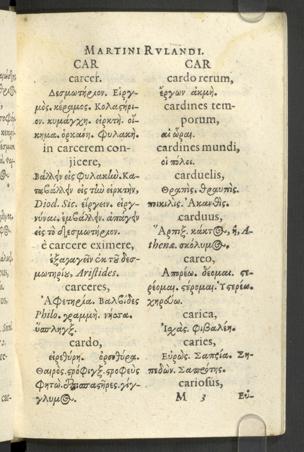 MARTINI RVLANDI.
CAR
carcer.
Δεσμωτήριον. Εἱργ-
μός. κέραμος. Κολαστήρι-
ον. κυμάγχη. εἱρκτή. οἴ-
κημα. ὁρκάνη. Φυλακή.
in carcerem con-
jicere,
Βάλλην εἰς Φυλακὼ. Κα-
ταβάλλην εἰς τὼ εἱρκτήν,
Diod. Sic. εἴργειν. εἱργ-
νύναι. ἐμβάλλην. ἀπάγην
εἰς τὸ δεσμωτήριον.
è carcere eximere,
ἐξαγαγεῖν ἐκ τῦ δεσ-
μωτηρίυ, Aristides.
carceres,
Ἀφετηρία. Βαλβίδες
Philo. γραμμή. νύσσα.
ὕσπληγξ.
cardo,
Θαιρός. στρόφιγξ. στροφεύς
γλυμος
CAR
cardo rerum,
ἔργων ἀκμή.
cardines tem-
porum,
αἱ ὧραι.
cardines mundi,
οἱ πόλοι.
carduelis,
Θραυπίς.
ποικιλίς. Ἀκανθίς.
carduus,
Ἄρπιξ. κάκτος, ἡ, A-
thenæ. σκόλυμος.
careo,
Ἀπορέω. δέομαι. στε-
ρέομαι. στέρομαι. Ὑστερέω.
χηρόω.
carica,
Ἰσχάς. Φιβαλέη.
caries,
Εὐρώς. Σαπρία. Ση-
πεδών. Σαπρότης.
cariosus,
M 3 Εὐ-